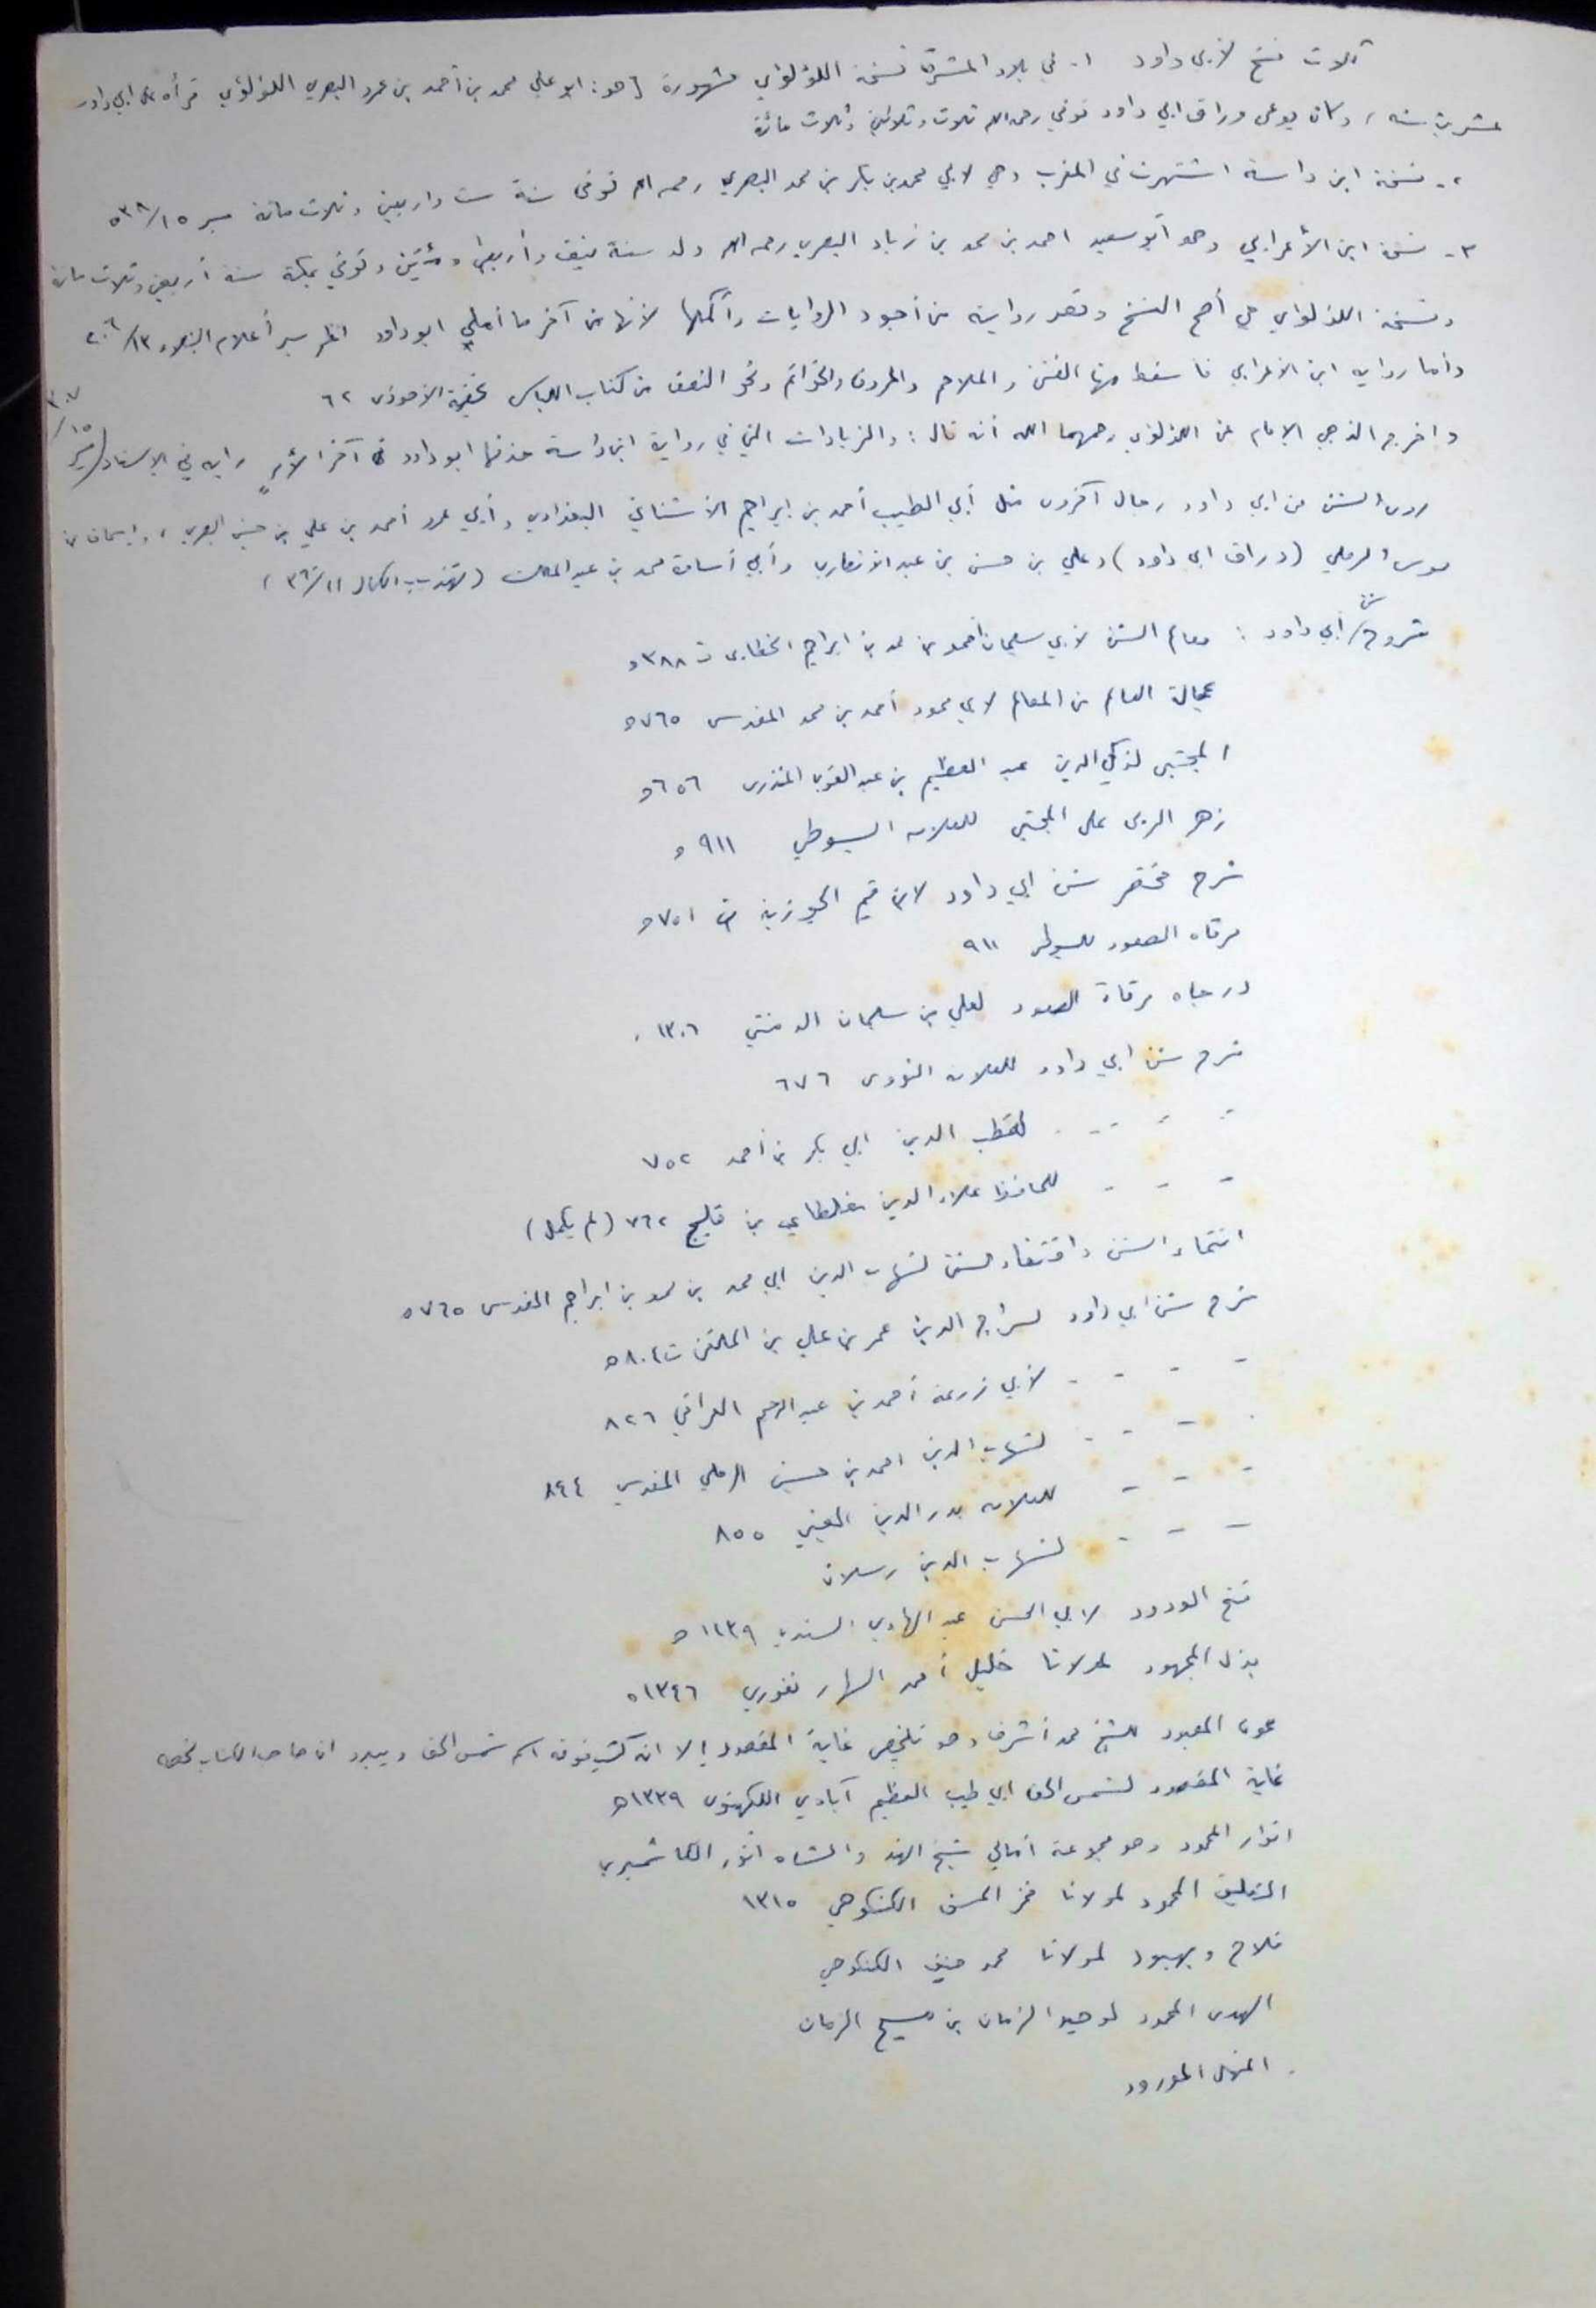 ثلاث نسخ لأبي داود ١- في بلاد المشرق نسخة اللؤلؤي مشهورة [هو: ابو علي محمد بن أحمد بن عمرو البصري اللؤلؤي قرأه على ابي داود
عشرين سنة، وكان يدعى وراق ابي داود توفي رحمه الله ثلاث وثلاثين وثلاث مائة
٢- نسخة ابن داسة اشتهرت في المغرب وهي لابي محمد بن بكر بن محمد البصري رحمه الله توفى سنة ست واربعين وثلاث مائة سير ١٥/٥٣٨
٣- نسخة ابن الأعرابي وهو أبو سعيد احمد بن محمد بن زياد البصري رحمه الله ولد سنة نيف وأربعين ومئتين وتوفي بمكة سنة أربعين وثلاث مائة
ونسخة اللؤلؤي هي أصح النسخ وتعد روايته من أجود الروايات وأكملها لأنها من آخر ما أملى ابو داود انظر سير أعلام النبلاء ١٣/٢٠٦
وأما رواية ابن الاعرابي فاسقط منها الفتن والملاحم والحروف والخواتم ونحو النصف من كتاب اللباس تحفة الأحوذي ٦٢
واخرج الذهبي الإمام عن اللؤلؤي رحمهما الله أنه قال: والزيادات التي في رواية ابن داسة حذفها ابو داود في آخر الأمر رابه في الإسناد (سير ١٥/٣٠٧
روى السنن عن ابي داود رجال آخرون مثل أبي الطيب أحمد بن ابراهيم الأشناني البغدادي وأبي عمرو أحمد بن علي بن حسن البصري، واسحاق بن
موسى الرملي (وراق ابي داود) وعلي بن حسن بن عبد الانصاري وأبي أسامة محمد بن عبد الملك (تهذيب الكمال ١١/٣٦٠)
شروح سنن أبي داود: معالم السنن لأبي سليمان أحمد بن محمد بن ابراهيم الخطابي ت ٣٨٨ه
عجالة العالم من المعالم لابي محمود أحمد بن محمد المقدسى ٧٦٥ه
المجتبى لذكي الدين عبد العظيم بن عبد القوي المنذرى ٦٥٦ه
زهر الربى على المجتبى للعلامه السيوطي ٩١١ ه
شرح مختصر سنن ابي داود لابن قيم الجوزية ت ٧٥١ه
مرقاه الصعود للسيوطى ٩١١
درجاه مرقاة الصعود لعلي بن سليمان الدمنتي ١٣٠٦
شرح سنن ابي داود للعلامه النووى ٦٧٦
- - - - لقطب الدين ابي بكر بن أحمد ٧٥٢
- - - للحافظ علاء الدين مغلطاي بن قليج ٧٦٢ (لم يكمل)
انتحاء السنن واقتفاء السنن لشهاب الدين ابي محمد بن محمد بن ابراهيم المقدسى ٧٦٥ه
شرح سنن ابي داود لسراج الدين عمر بن علي بن الملقن ت ٨٠٤ه
- - - - لأبي زرعة أحمد بن عبد الرحيم العراقي ٨٢٦
- - - - لشهاب الدين احمد بن حسين الرملي المقدسي ٨٤٤
- - - للعلامه بدر الدين العيني ٨٥٥
- - - لشهاب الدين رسلان
فتح الودود لابي الحسن عبد الهادي السندي ١١٣٩ ه
بذل المجهود لمولانا خليل أحمد السهارنفوري ١٣٤٦ه
عون المعبود للشيخ محمد أشرف وهو تلخيص غاية المقصود إلا انه كتب فوقه اسم شمس الحق ويبدو ان صاحب الكتاب لخصه
غاية المقصود لشمس الحق ابي طيب العظيم آبادي اللكهنوى ١٣٢٩ه
انوار المحمود وهو مجموعة أمالي شيخ الهند والشاه انور الكاشميري
التعليق المحمود لمولانا فخر الحسن الكنكوهي ١٣١٥
فلاح وبهبود لمولانا محمد حنيف الكنكوهي
الهدى المحمود لوحيد الزمان بن مسيح الزمان
المنهل المورود